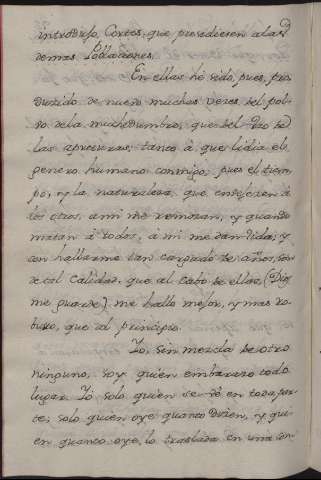 introdujo, Cortes, que presidiesen a las
demas Poblaciones.
En ellas hé sido, pues, pro
ducido de nuevo muchas veces del pol-
vo de la muchedumbre, que del
las apreturas, tanto á que lidia el
genero humano conmigo; pues el tiem
po, y la naturaleza, que envejecen á
los otros, a mi me remozan, y quando
matan á todos, á mi me dan vida; y
con hallarme tan cargado de años, son
de tal calidad, que al cabo de ellos, (Dios
me guarde) me hallo mejor, y mas ro-
busto, que al principio.
Yo, sin mezcla de otro
ninguno, soy quien embarazo todo
lugar. Yo solo quien se vé en toda par-
te; solo quien oye quanto dicen, y qui-
en quanto oye, lo traslada en una con